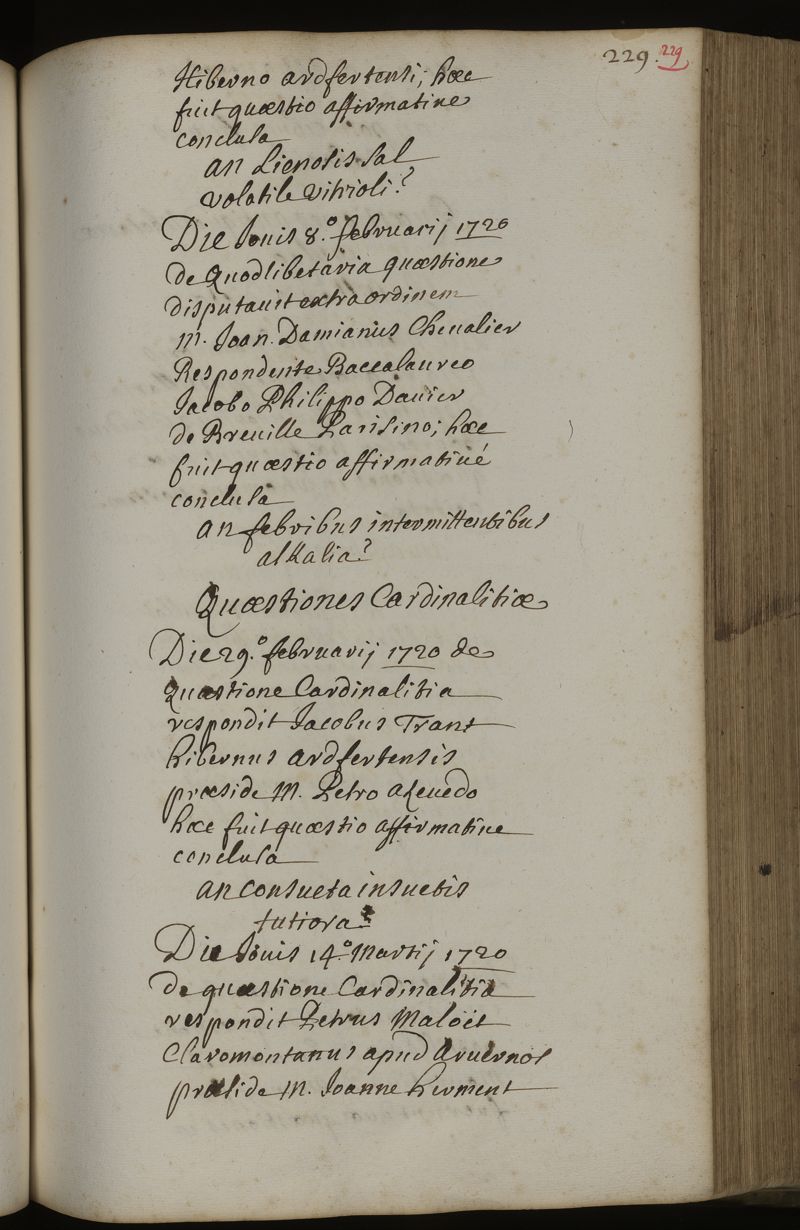 229. 229
Hiberno ardfertensi; hæc
fuit quæstio affirmative
conclusa
an Lienosis sal
volatile vitrioli?
Die Jouis 8.º februarij 1720
de Quodlibetaria quæstione
disputauit extra ordinem
M. Joan. Damianus Cheualier
Respondente Baccalaureo
Jacobo Philippo Dauier
de Breuille Parisino; hæc
fuit quæstio affirmatiué
conclusa
an febribus intermittentibus
alkalia?
Quæstiones Cardinalitiæ
Die 29.º februarij 1720 de
Quæstione Cardinalitia
respondit Jacobus Trant
hibernus ardfertensis
præside M. Petro azeuedo
hæc fuit quæstio affirmatiue
conclusa
an consueta insuetis
tutiora?
Die Jouis 14.º Martij 1720
de quæstione Cardinalitia
respondit Petrus Maloët
Claromontanus apud Aruernos
præside M. Joanne herment